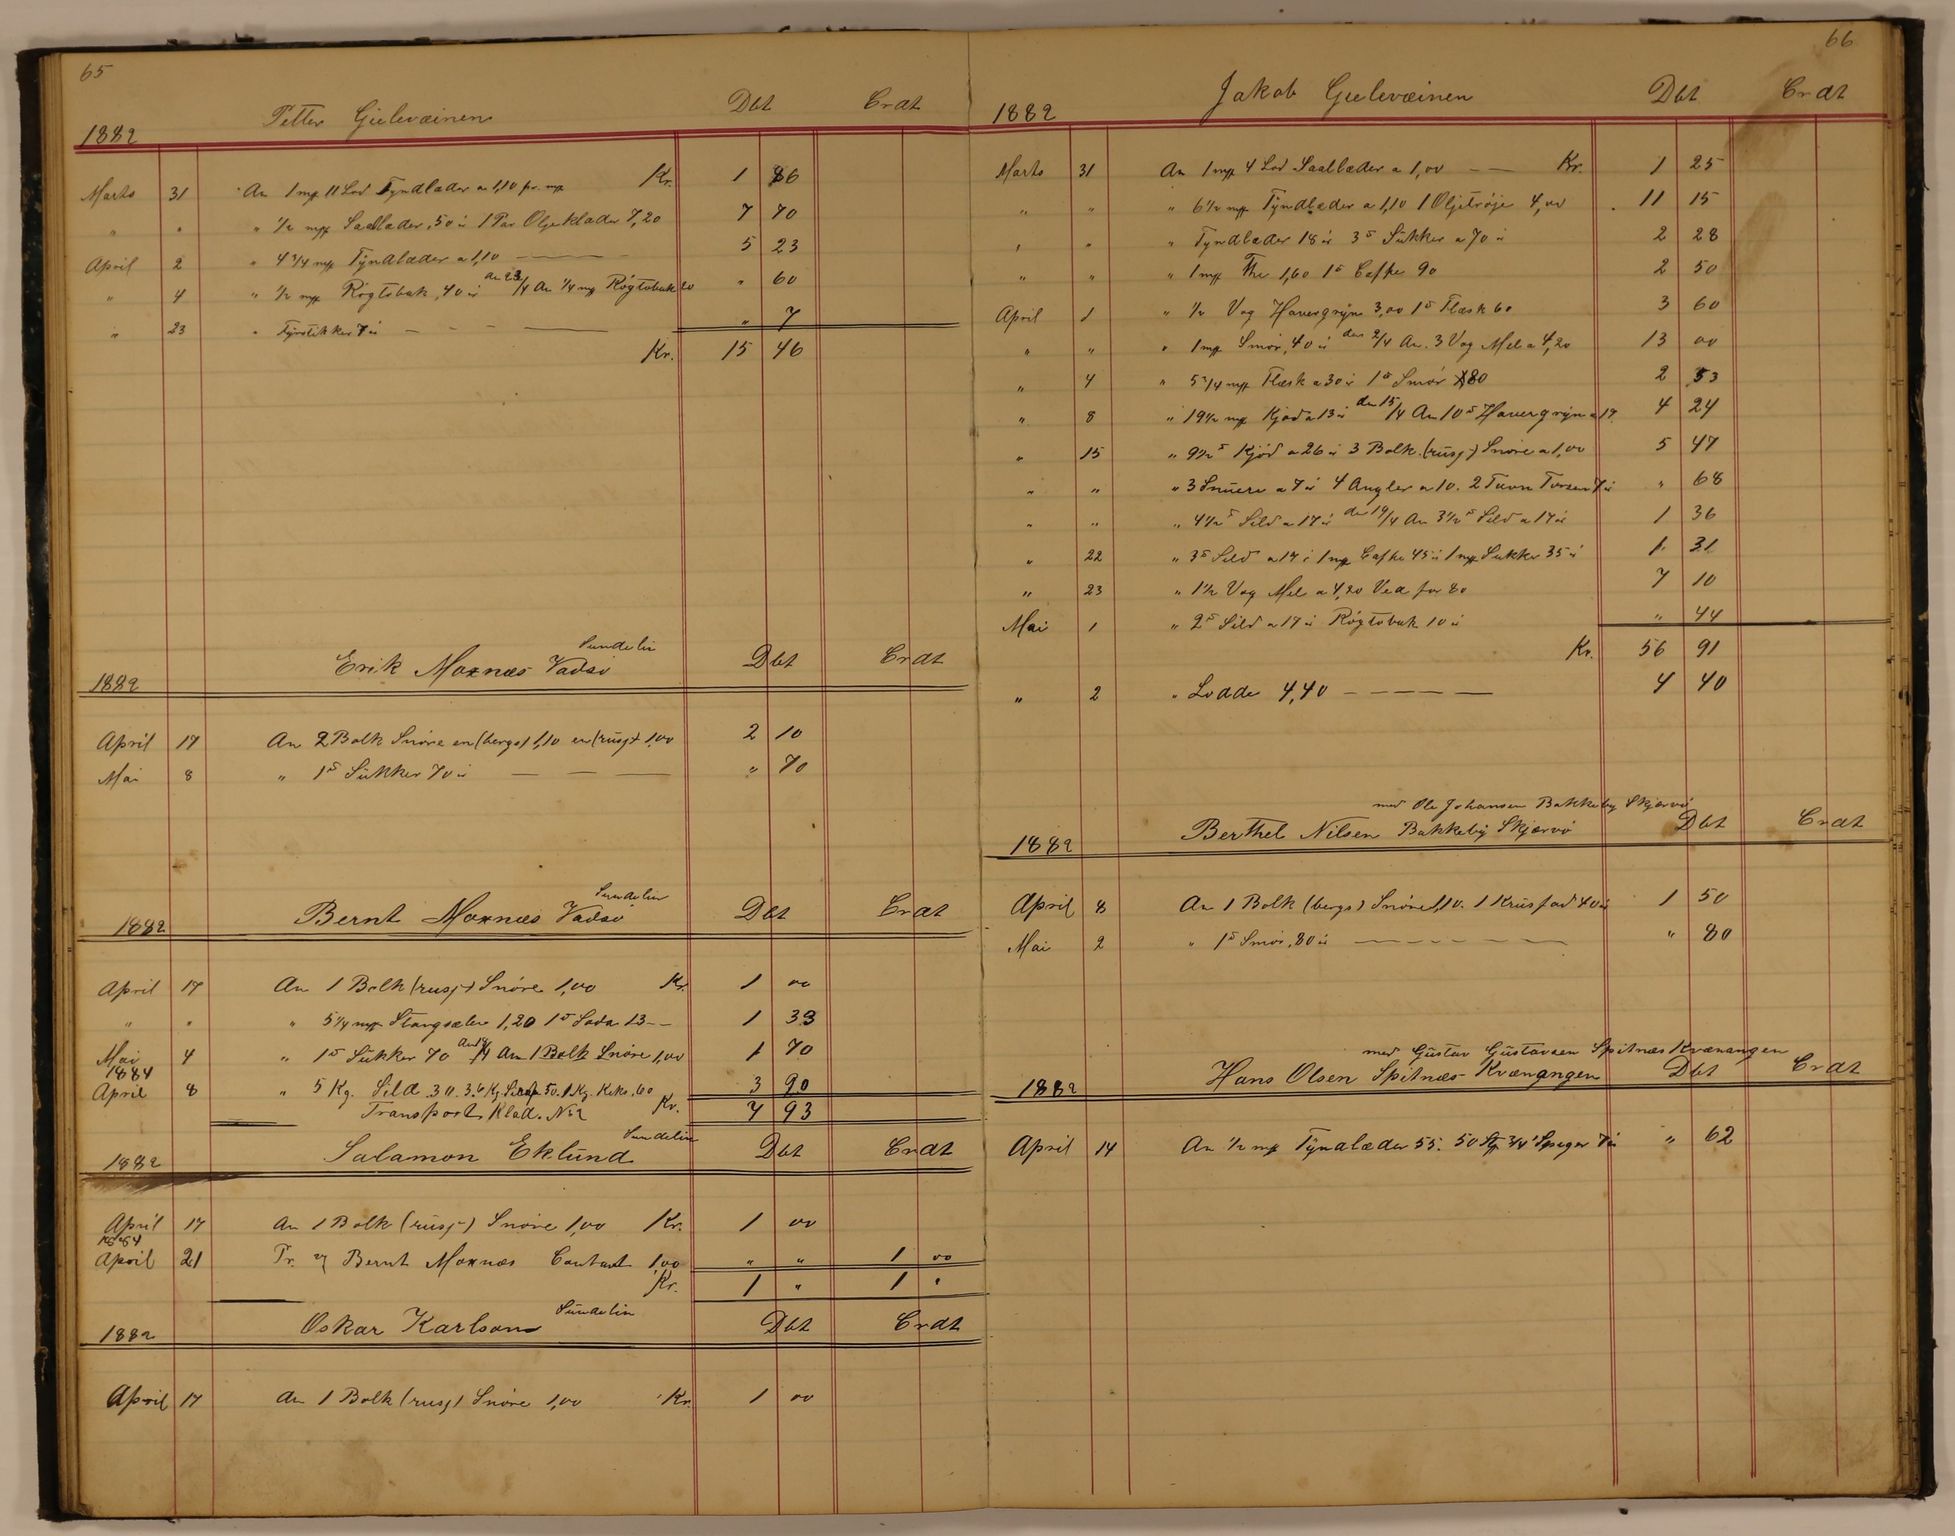 65
1882 Petter Gielevæinen Dbt Crdt
Marts 31 An 1 mp 11 Lod Tyndlæder a 1,10 pr. mp Kr. 1 86
" " " 1/2 mp Saallæder ,50 ü 1 Par Oljeklæder 7,20 7 70
April 2 " 4 3/4 mp Tyndlæder a 1,10 5 23
" 4 " 1/2 mp Røgtobak ,40 ü den 23/4 An 1/4 mp Røgtobak 20 " 60
" 23 " Fyrstikker 7 ü " 7
Kr. 15 46
Sundelin
1882 Erik Moxnæs Vadsö Dbt Crdt
April 17 An 2 Bolk Snøre en (bergs) 1,10 en (rusj) 1,00 2 10
Mai 8 " 1 5 Sükker 70 ü " 70
Sundelin
1882 Bernt Moxnæs Vadsö Dbt Crdt
April 17 An 1 Bolk (rusj) Snøre 1,00 Kr. 1 00
" " " 5 1/4 mp Stangsælen 1,20 1 5 Soda 13 1 33
Mai 4 " 1 5 Sükker 70 An 1 Bolk Snøre 1,00 1 70
1884
April 8 " 5 Kg. Sild .30. 3.6 Kg. Sirup 50. 1 Kg. Keks .60 3 90
Transport Klad. No 2 Kr. 7 93
Sundelin
1882 Salamon Eklünd Dbt Crdt
April 17 An 1 Bolk (rusj) Snøre 1,00 Kr. 1 00
1884
April 21 Pr. Bernt Moxnæs Contant 1,00 " " 1 00
Kr. 1 " 1 "
Sündelin
1882 Oskar Karlson Dbt Crdt
April 17 An 1 Bolk (rusj) Snøre 1,00 Kr. 1 00
66
1882 Jakob Gielevæinen Dbt Crdt
Marts 31 An 1 mp 4 Lod Saallæder a 1,00 Kr. 1 25
" " " 6 1/2 mp Tyndlæder a 1,10 1 Oljetrøje 4,00 11 15
" " " Tyndlæder 18 ü 3 5 Sükker a 70 ü 2 28
" " " 1 mp The 1,60 1 5 Caffe 90 2 50
April 1 " 1/2 Vog Havergryn 3,00 1 5 Flæsk 60 3 60
" " " 1 mp Smør ,40 ü den 2/4 An. 3 Vog Mel a 4,20 13 00
" 4 " 5 3/4 mp Flæsk a 30 ü 1 5 Smör 80 2 53
" 8 " 19 1/2 mp Kjød a 13 ü den 15/4 An 10 5 Havergryn a 17 4 24
" 15 " 9 1/2 5 Kjød a 26 ü 3 Bolk (rusj) Snøre a 1,00 5 47
" " " 3 Snuere a 7 ü 4 Angler a 10. 2 Tavn Torsen 7 ü " 68
" " " 4 1/2 5 Sild a 17 ü den 19/4 An 3 1/2 5 Sild a 17 ü 1 36
" 22 " 3 5 Sild a 17 ü 1 mp Caffe 45 ü 1 mp Sukker 35 ü 1 31
" 23 " 1 1/2 Vog Mel a 4,20 Ved for 80 7 10
Mai 1 " 2 5 Sild a 17 ü Røgtobak 10 ü " 44
Kr. 56 91
" 2 " Lodde 4,40 4 40
med Ole Johansen Bakkeby Skjervö
1882 Berthel Nilsen Bakkeby Skjervö Dbt Crdt
April 8 An 1 Bolk (bergs) Snøre 1,10. 1 Krusfad 40 ü 1 50
Mai 2 " 1 5 Smør ,80 ü " 80
med Güstav Güstavsen Spitnæs Kvænangen
1882 Hans Olsen Spitnæs Kvænangen Dbt Crdt
April 14 An 1/2 mp Tyndlæder 55. 50 Stp 3/4" Speger 7 ü " 62